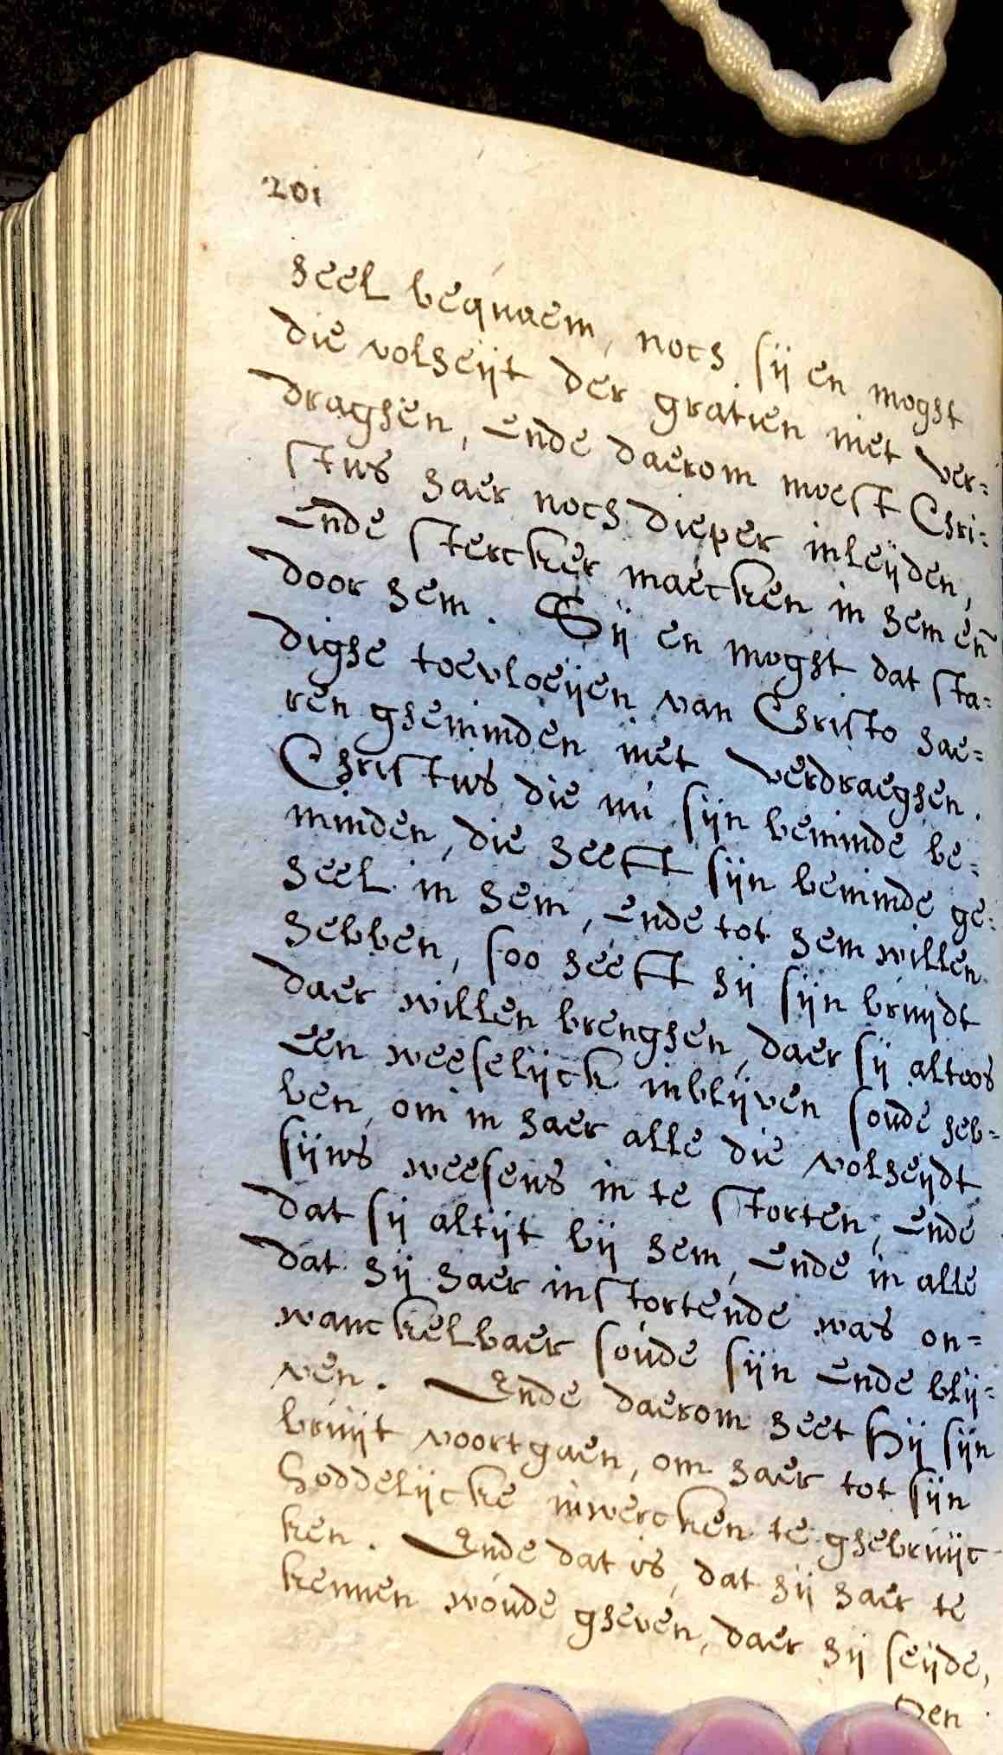 201
heel bequaem, noch sij en moght
die volheijt der gratien niet ver=
draghen, Ende daerom moest Chri=
stus haer noch dieper inleijden,
Ende stercker maecken in hem en̄
door hem. Sij en moght dat sta=
dighe toevloeijen van Christo hae=
ren gheminden niet verdraeghen.
Christus die nu sijn beminde be=
minden, die heeft sijn beminde ge=
heel in hem, Ende tot hem willen
hebben, soo heeft hij sijn bruijdt
daer willen brenghen, daer sij altoos
Een weeselijck inblijven soude heb=
ben, om in haer alle die volheijdt
sijns weesens in te storten, Ende
dat sij altijt bij hem, Ende in alle
dat hij haer instortende was on=
wanckelbaer soude sijn Ende blij=
ven. Ende daerom heet hij sijn
bruijt voortgaen, om haer tot sijn
Goddelijcke inwercken te ghebruijc
ken. Ende dat is, dat hij haer te
kennen woude gheven, daer hij seijde,
Den